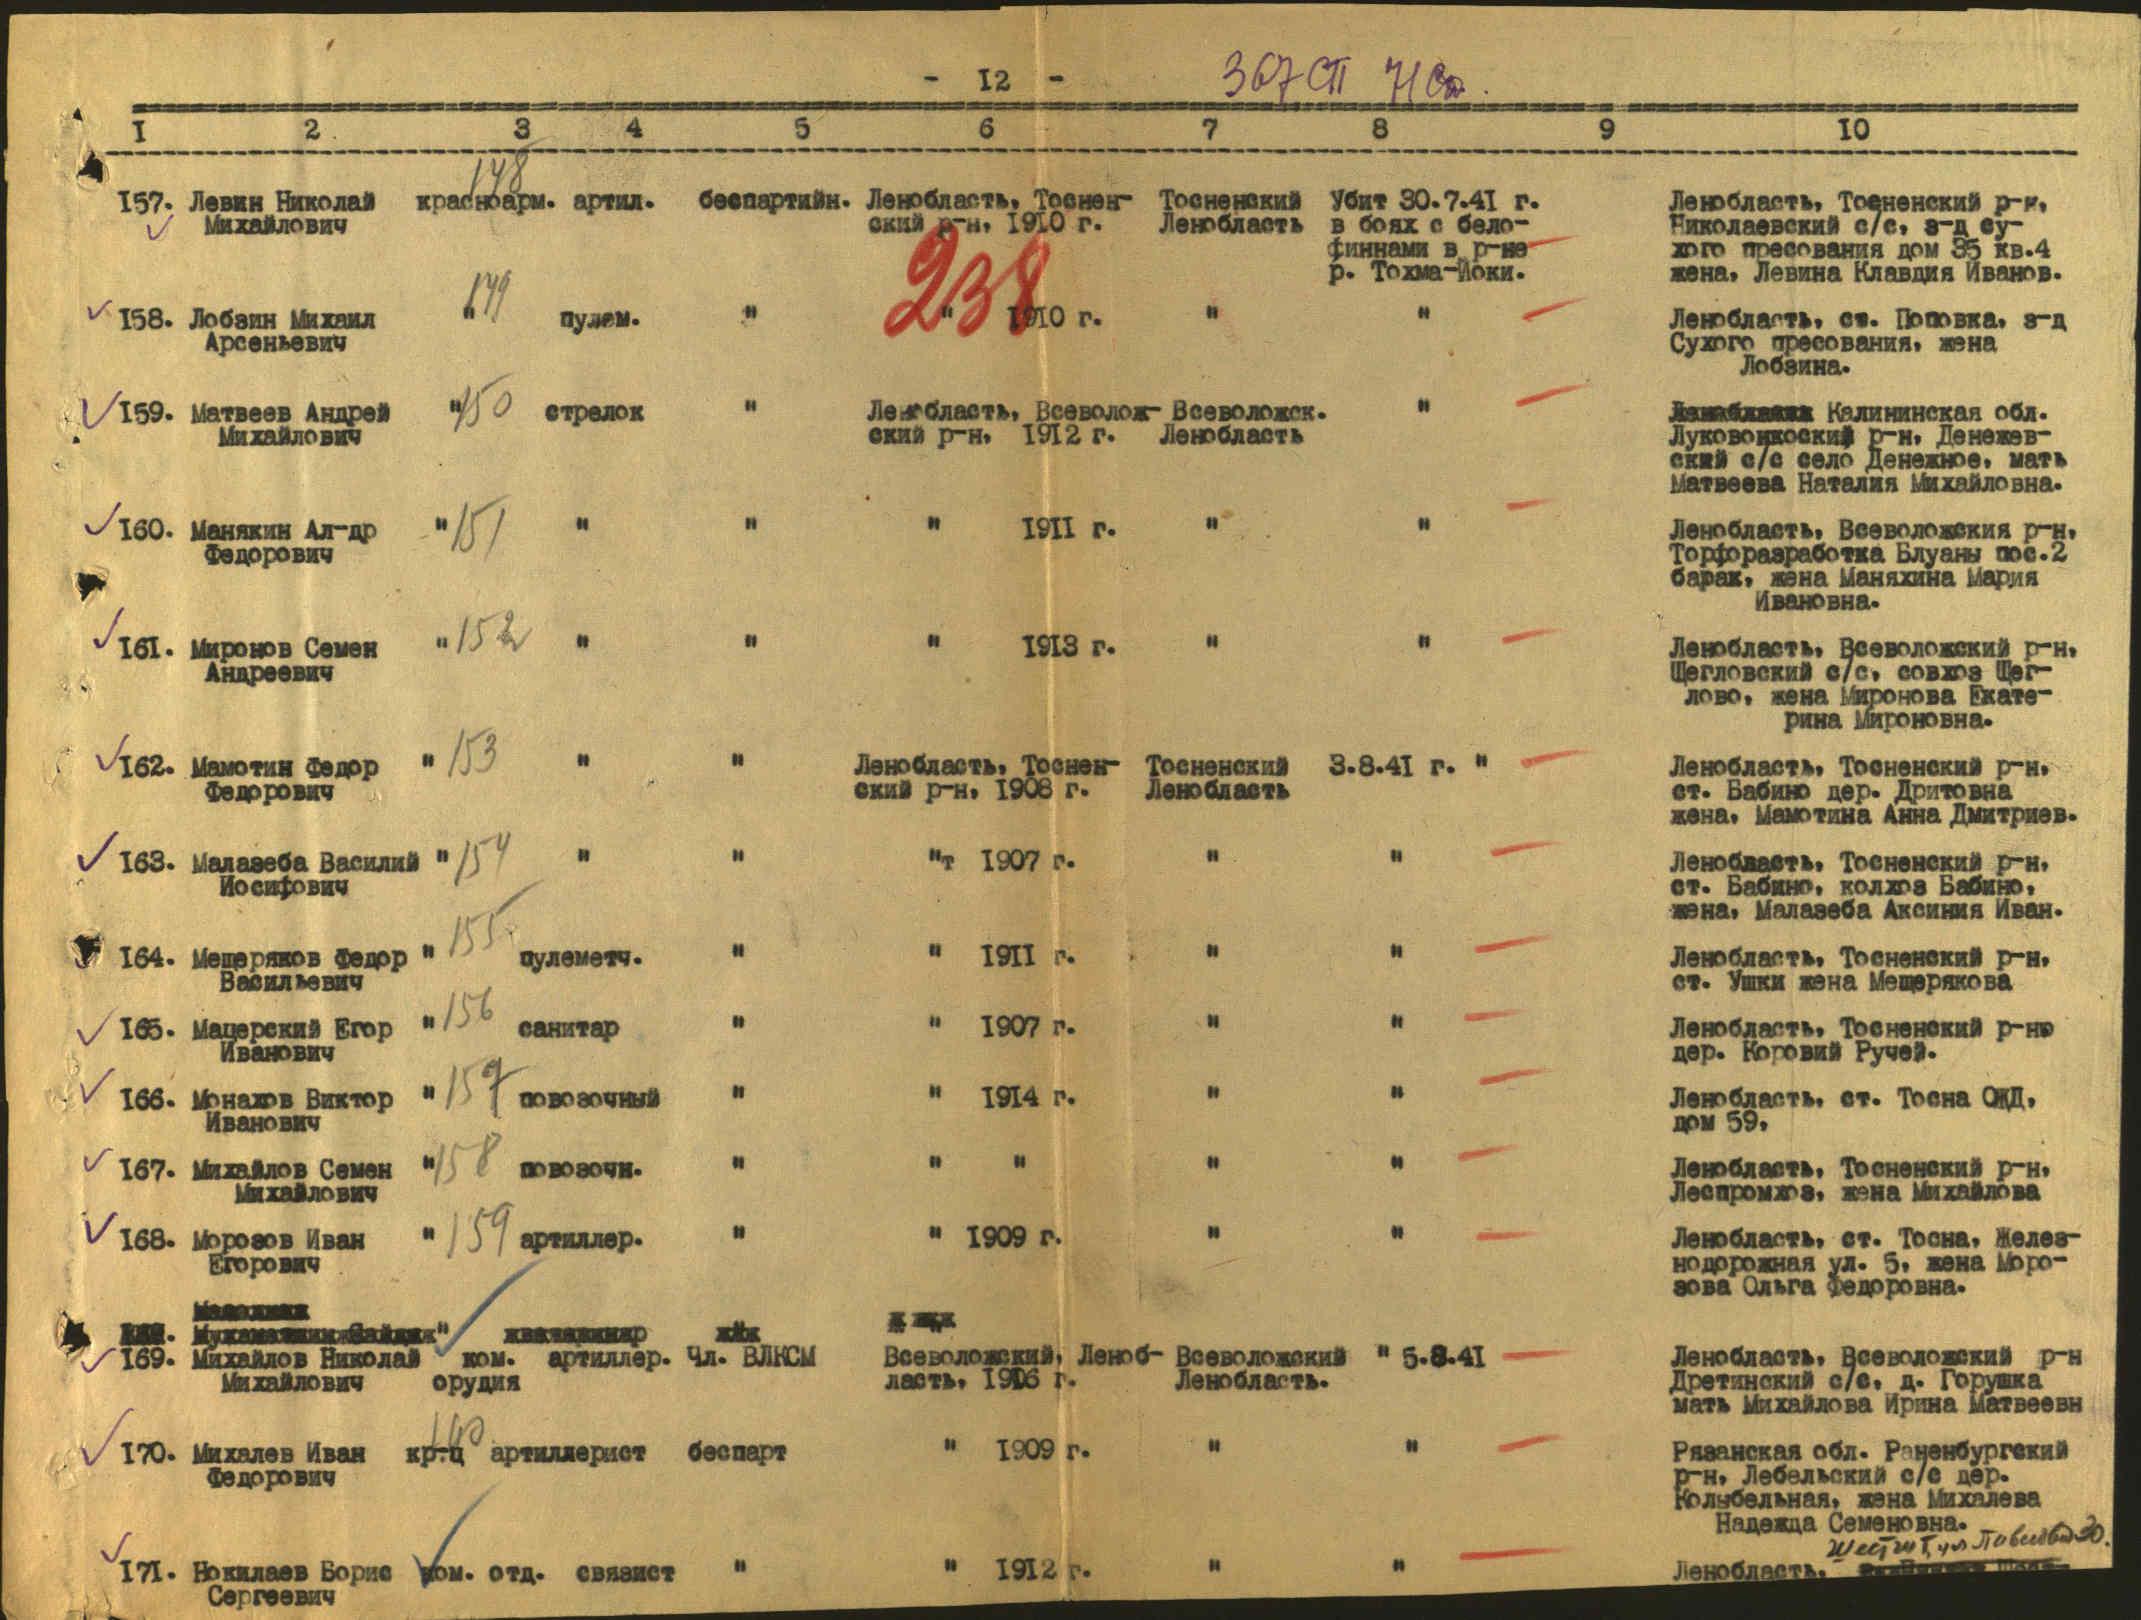 - 12 -
367 СП 71 Сд.
1 2 3 4 5 6 7 8 9 10
148
157. Левин Николай красноарм. артил. беспартийн. Ленобласть, Тоснен- Тосненский Убит 30.7.41 г. Ленобласть, Тосненский р-н,
Михайлович ский р-н, 1910 г. Ленобласть в боях с бело- Николаевский с/с, з-д су-
финнами в р-не хого пресования дом 35 кв.4
р. Тохма-Йоки. жена, Левина Клавдия Иванов.
238
149
158. Лобзин Михаил " пулем. " " 1910 г. " " Ленобласть, ст. Поповка, з-д
Арсеньевич Сухого пресования, жена
Лобзина.
159. Матвеев Андрей " 150 стрелок " Ленобласть, Всеволож- Всеволожск. " Калининская обл.
Михайлович ский р-н, 1912 г. Ленобласть р-н, Денежев-
ский с/с село Денежное, мать
Матвеева Наталия Михайловна.
160. Манякин Ал-др " 151 " " " 1911 г. " " Ленобласть, Всеволожския р-н,
Федорович Торфоразработка Блуаны пос.2
барак, жена Маняхина Мария
Ивановна.
161. Миронов Семен " 152 " " " 1913 г. " " Ленобласть, Всеволожский р-н,
Андреевич Щегловский с/с, совхоз Щег-
лово, жена Миронова Екате-
рина Мироновна.
162. Мамотин Федор " 153 " " Ленобласть, Тоснен- Тосненский 3.8.41 г. " Ленобласть, Тосненский р-н,
Федорович ский р-н, 1908 г. Ленобласть ст. Бабино дер. Дритовна
жена, Мамотина Анна Дмитриев.
163. Малазеба Василий " 154 " " "т 1907 г. " " Ленобласть, Тосненский р-н,
Иосифович ст. Бабино, колхоз Бабино,
жена, Малазеба Аксиния Иван.
164. Мещеряков Федор " 155 пулеметч. " " 1911 г. " " Ленобласть, Тосненский р-н,
Васильевич ст. Ушки жена Мещерякова
165. Мацерский Егор " 156 санитар " " 1907 г. " " Ленобласть, Тосненский р-но
Иванович дер. Коровий Ручей.
166. Монахов Виктор " 157 повозочный " " 1914 г. " " Ленобласть, ст. Тосна ОЖД,
Иванович дом 59,
167. Михайлов Семен " 158 повозочн. " " " " " Ленобласть, Тосненский р-н,
Михайлович Леспромхоз, жена Михайлова
168. Морозов Иван " 159 артиллер. " " 1909 г. " " Ленобласть, ст. Тосна, Желез-
Егорович нодорожная ул. 5, жена Моро-
зова Ольга Федоровна.
169. Михайлов Николай ком. артиллер. Чл. ВЛКСМ Всеволожский, Леноб- Всеволожский " 5.8.41 Ленобласть, Всеволожский р-н
Михайлович орудия ласть, г. Ленобласть. Дретинский с/с, д. Горушка
мать Михайлова Ирина Матвеевн
160
170. Михалев Иван кр-ц артиллерист беспарт " 1909 г. " " Рязанская обл. Раненбургский
Федорович р-н, Лебельский с/с дер.
Колыбельная, жена Михалева
Надежда Семеновна.
171. Нокилаев Борис ком. отд. связист " " 1912 г. " " Ленобласть,
Сергеевич